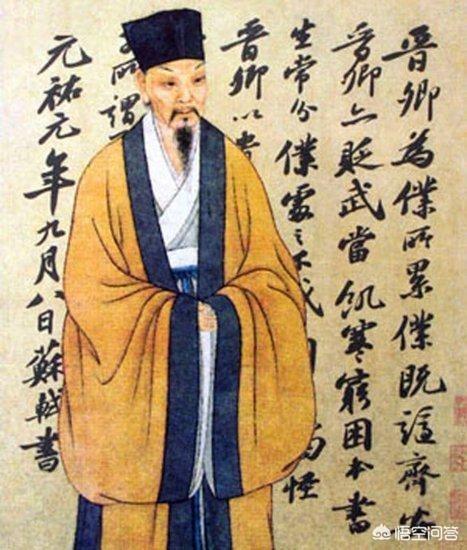 晉卿為僕所累僕既謫齊安
晉卿亦貶武當飢寒窮困本書
生常分僕處之不戚怪
晉卿以貴
所謂
元祐元年九月八日蘇軾書
悟空问答